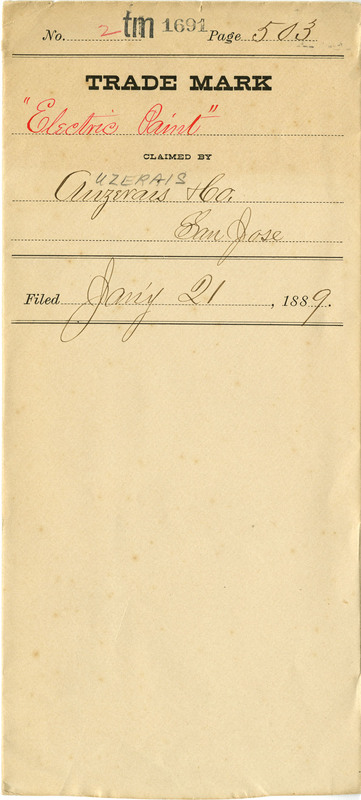 No. 2 tm 1691 Page 503
TRADE MARK
"Electric Paint"
CLAIMED BY
UZERAIS
Auzerais & Co.
San Jose
Filed Jan'y 21, 1889.